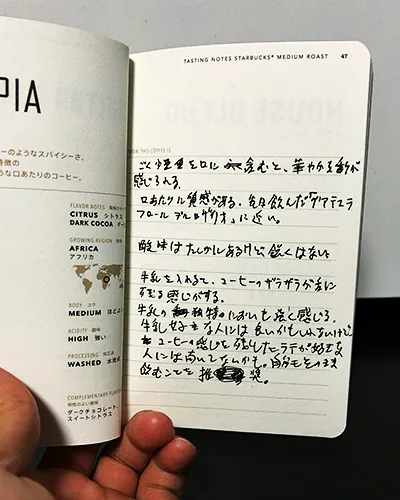 PIA
ーのようなスパイシーさ、
特徴の
うな口あたりのコーヒー。
FLAVOR NOTES
CITRUS シトラス
DARK COCOA ダー
GROWING REGION
AFRICA
アフリカ
BODY コク
MEDIUM ほどよい
ACIDITY 酸味
HIGH 強い
PROCESSING 加工法
WASHED 水洗式
COMPLEMENTARY FLAVORS
相性のよい風味
ダークチョコレート、
スイートシトラス
TASTING NOTES STARBUCKS® MEDIUM ROAST 47
THIS COFFEE IS
ごく少量を口に含むと、華やかな香りが
感じられる。
口あたりに質感がある。先日飲んだ「グアテマラ
フロール デル ロサリオ」に近い。
酸味はたしかにあるけど鋭くはない
牛乳を入れると、コーヒーのザラザラが舌に
残る感じがする。
牛乳の独特のにおいも強く感じる。
牛乳好きな人には良いかもしれないけど
コーヒーの感じを残したラテが好きな
人には向いてないかも。自分もそのまま
飲むことを推奨。